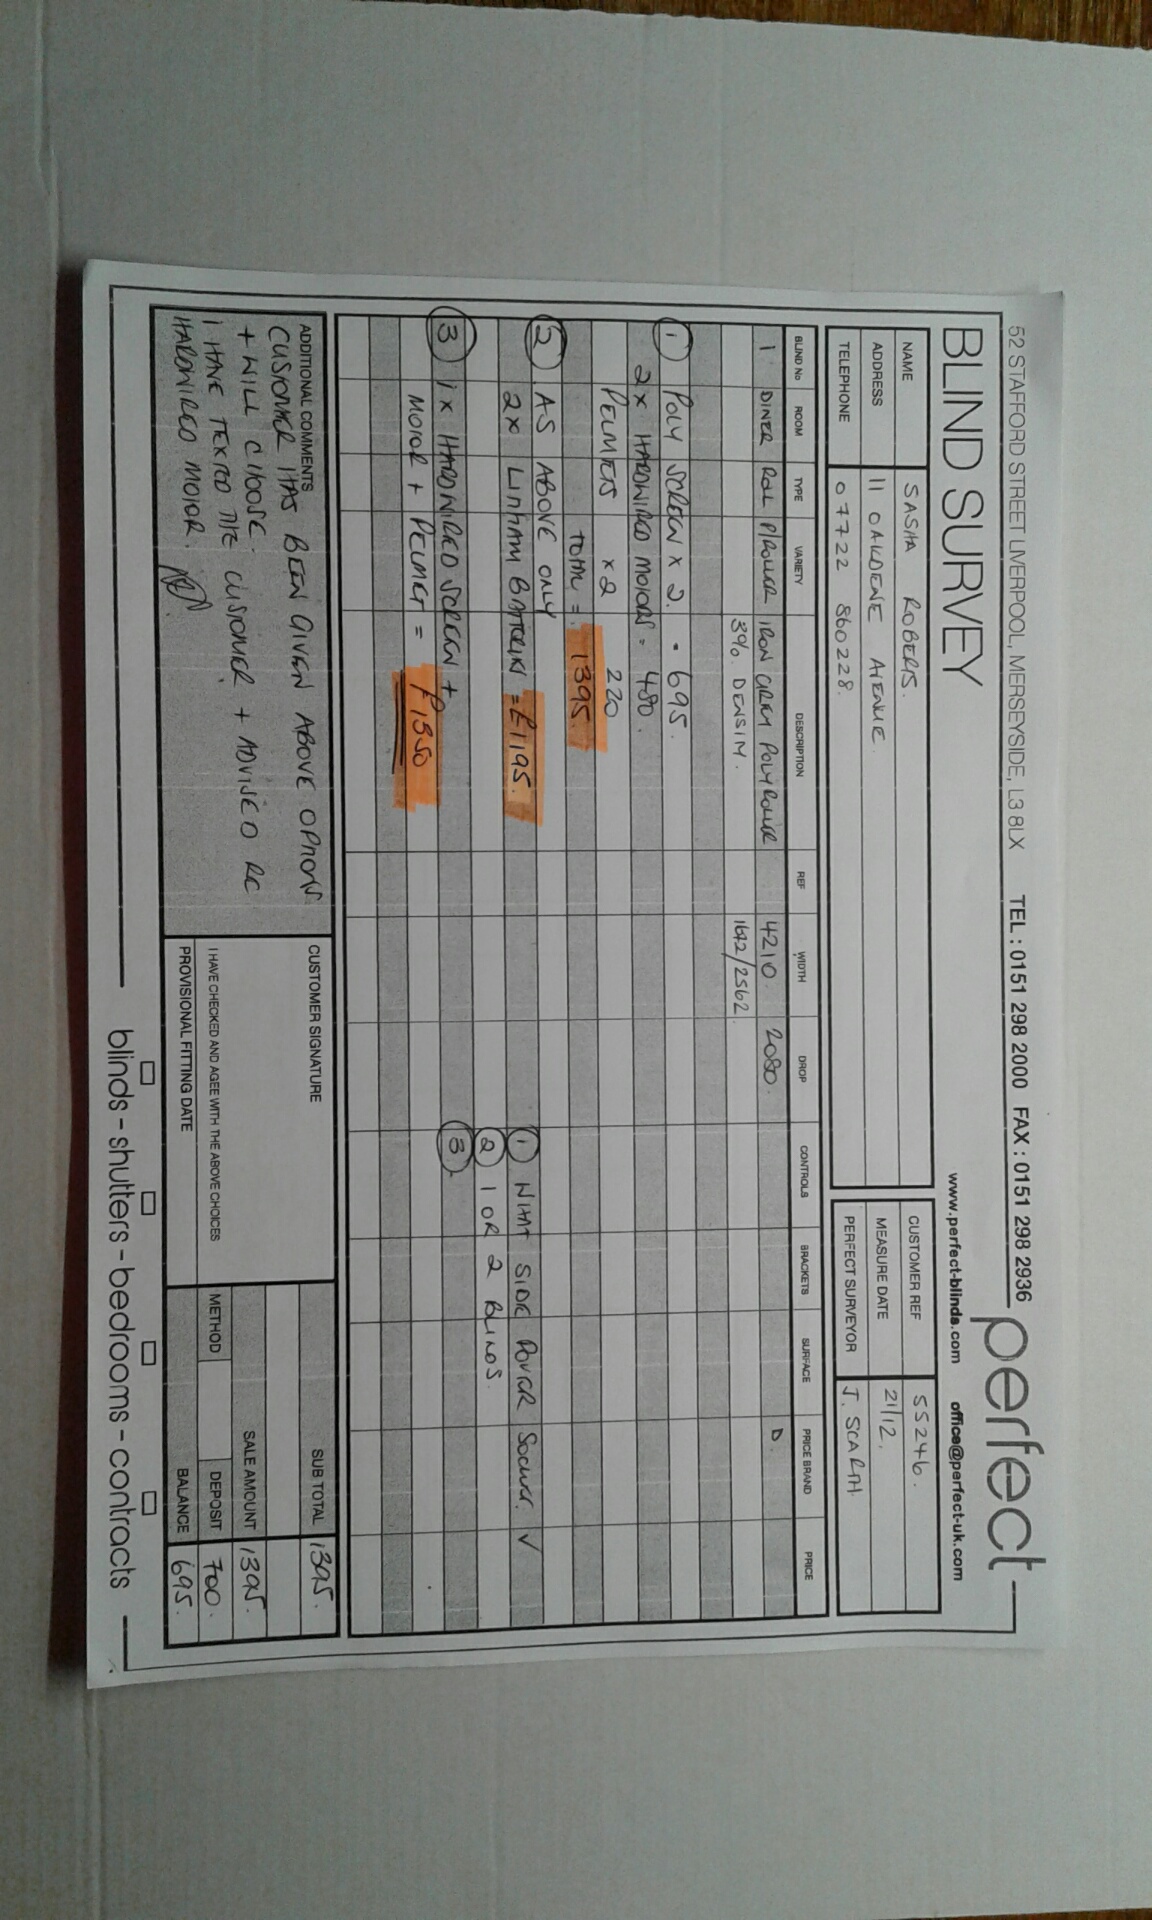 52 STAFFORD STREET LIVERPOOL, MERSEYSIDE, L3 8LX TEL : 0151 298 2000 FAX : 0151 298 2936
perfect
BLIND SURVEY
www.perfect-blinds.com office@perfect-uk.com
NAME SASHA ROBERTS.
ADDRESS 11 OAKDENE AVENUE.
TELEPHONE 07722 860228.
CUSTOMER REF 55246.
MEASURE DATE 21/12.
PERFECT SURVEYOR J. SCARTH.
BLIND No ROOM TYPE VARIETY DESCRIPTION REF WIDTH DROP CONTROLS BRACKETS SURFACE PRICE BRAND PRICE
1 DINER ROLL P/ROLLER IRON GREY 4210. 2080. D.
3% DENSITY. 1642/2562.
1 POLY SCREEN x 2. - 695.
2x HARDWIRED MOTORS = 480.
PELMETS x2 220
TOTAL = 1395.
2 AS ABOVE ONLY
2x LITHIUM BATTERIES = £1195.
3 1x HARDWIRED SCREEN +
MOTOR + PELMET = £1350
1 WHAT SIDE POWER SOURCE. ✓
2 1 OR 2 BLINDS.
3
ADDITIONAL COMMENTS
CUSTOMER HAS BEEN GIVEN ABOVE OPTIONS
+ WILL CHOOSE.
I HAVE TEXTED THE CUSTOMER + ADVISED RE
HARDWIRED MOTOR.
CUSTOMER SIGNATURE
I HAVE CHECKED AND AGEE WITH THE ABOVE CHOICES
PROVISIONAL FITTING DATE
SUB TOTAL 1395.
SALE AMOUNT 1395.
METHOD DEPOSIT 700.
BALANCE 695.
blinds - shutters - bedrooms - contracts